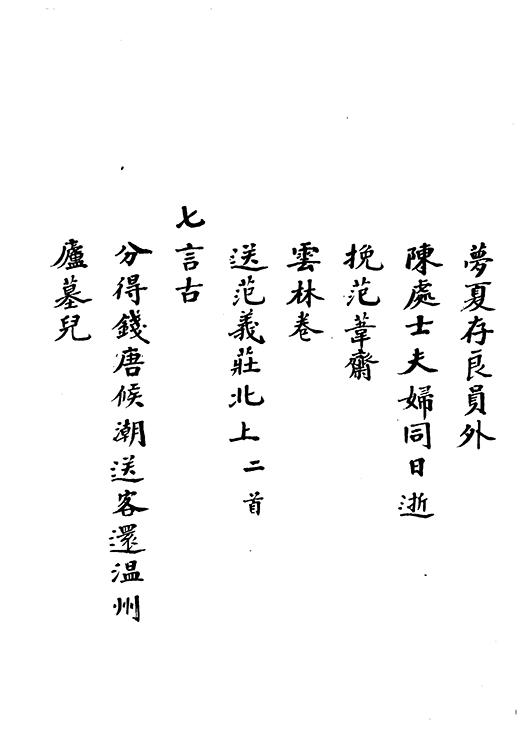 夢夏存良員外
陳處士夫婦同日逝
挽范葦齋
雲林卷
送范義莊北上二首
七言古
分得錢唐候潮送客還温州
廬墓兒